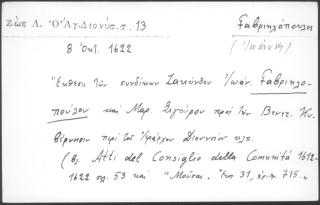 Ζώη Λ. Ὁ Ἁγ. Διονύσ. σ. 13
Γαβριηλόπουλος
(Ἰωάννης)
8 Ὀκτ. 1622
Ἔκθεσις τῶν συνδίκων Ζακύνθου Ἰωάν. Γαβριηλο-
πούλου καὶ Μαρ. Σιγούρου πρὸς τὴν Βενετ. Κυ-
βέρνησιν περὶ τοῦ Διονυσίου κλπ.
(Βλ. Atti del Consiglio della Comunità 1612-
1622 σελ. 53 καὶ "Μούσαι" ἔτος 31, ἀριθ. 715.